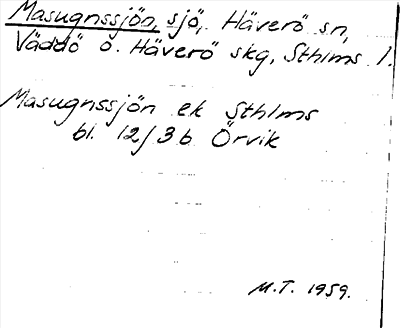 Masugnssjön, sjö, Häverö sn,
Väddö o. Häverö skg, Sthlms l.
Masugnssjön ek Sthlms
bl. 12/3b Örvik
M.T. 1959.